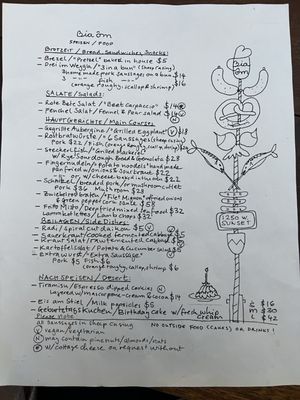 Bia öm
SPEISEN / FOOD
BROTZEIT / Bread, Sandwiches, Snacks:
- Brezel / "Pretzel" baked in house $5
- Drei im Weggla / "3 in a bun" (chose facing)
3 home made pork sausages on a bun $14
3 — " — fish — " — $16
(orange roughy, scallop & shrimp)
SALATE / Salads:
- Rote Bete Salat / "Beet carpaccio" $14
- Fenchel Salat / Fennel & Pear salad $14
HAUPTGERICHTE / Main Courses
- Gegrillte Aubergine / "Grilled Eggplant" V $18
- Rostbratwürste / "6 Sausages
Pork $22 / Fish (orange Roughy, scallop, shrimp)
- Steckerlfisch / Grilled Mackerel
w/ Rye/Sourdough Bread & Gremolata $28
- Fingernudeln / Potato noodels "hand made"
pan fried w/ onions & Sour kraut $22
or, w/ cheese baked in the oven $22
- Schnitzel / Breaded pork / or mushroom + Het
Pork $36 Mushroom $28
- Zwiebelrostbraten / "Filet Mignon" w/ fried onions
& Green pepper corn sauce $58
- Frito Misto / Deep fried mixed Sea food $32
- Lammkotelettes / Lamb chops $32
BEILAGEN / Side Dishes:
- Radi / spiral cut daikon $5 V
- Sauerkraut / Cooked fermented cabbage $5
- Krautsalat / raw fermented cabbage $5
- Kartoffelsalat / Potato & Cucumber salad $
- Extrawurst / Extra Sausage
Pork $5 Fish $6
(orange roughy, scallop, shrimp $6
NACHSPEISEN / Desert:
- Tiramisu / Espresso dipped cookies N
Layered w/ mascarpone-cream & cocoa $14
- Eis am Stiel / Milk popsicles $5
- Geburtstagskuchen / Birthday cake w/ fresh whip cream
S $16
M $30
L $42
Please note
all Sausages in Sheep Casing
V vegan/vegetarian
N may contain pinenuts/almonds/nuts
* w/ cottage cheese on request without
NO OUTSIDE FOOD (CAKES) OR DRINKS!
Bia öm
1250 W. SUNSET